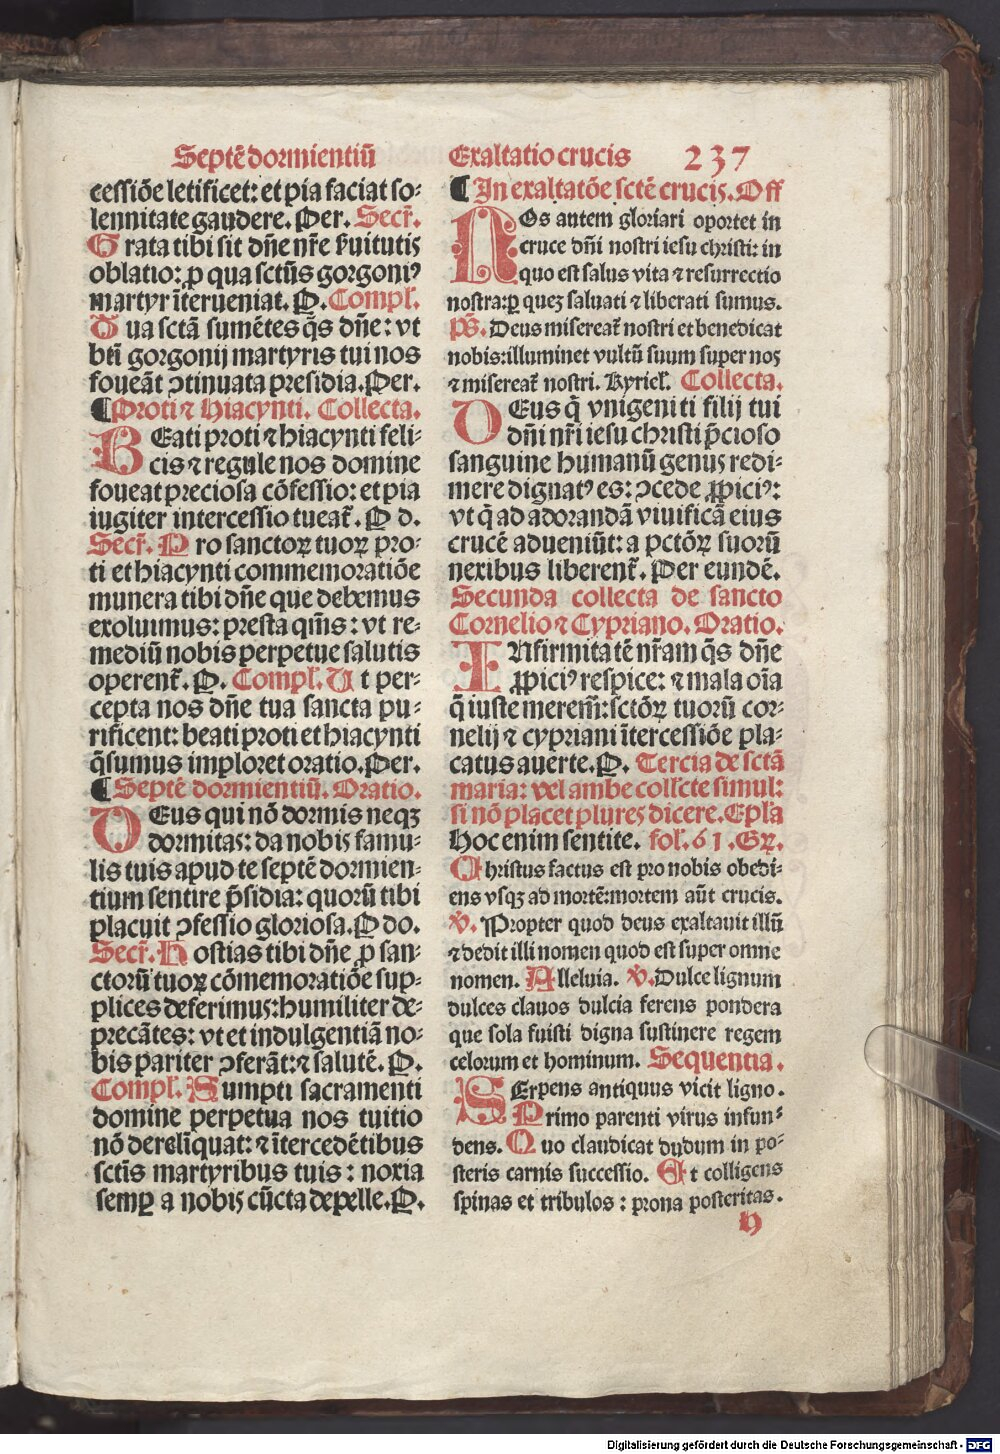 Septē dormientiū
cessiōe letificet: et pia faciat so-
lennitate gaudere. Per. Secr̄.
Grata tibi sit dn̄e nr̄e ẜuitutis
oblatio: ꝑ qua sctūs gorgoniꝰ
martyr īterueniat. P. Compl̄.
Tua sctā sumētes q̄s dn̄e: vt
bt̄i gorgonij martyris tui nos
foueāt ꝯtinuata presidia. Per.
¶ Proti ⁊ Hiacynti. Collecta.
BEati proti ⁊ hiacynti feli-
cis ⁊ regule nos domine
foueat preciosa cōfessio: et pia
iugiter intercessio tueat̄. P d.
Secr̄. Pro sanctoꝝ tuoꝝ pro-
ti et hiacynti commemoratiōe
munera tibi dn̄e que debemus
exoluimus: presta qm̄s: vt re-
mediū nobis perpetue salutis
operent̄. P. Compl̄. Ut per-
cepta nos dn̄e tua sancta pu-
rificent: beati proti et hiacynti
q̄sumus imploret oratio. Per.
¶ Septē dormientiū. Oratio.
DEus qui nō dormis neqꝫ
dormitas: da nobis famu-
lis tuis apud te septē dormien-
tium sentire p̄sidia: quorū tibi
placuit ꝯfessio gloriosa. P do.
Secr̄. Hostias tibi dn̄e ꝓ san-
ctorū tuoꝝ cōmemoratiōe sup-
plices deferimus: humiliter de-
precātes: vt et indulgentiā no-
bis pariter ꝯferāt: ⁊ salutē. P.
Compl̄. Sumpti sacramenti
domine perpetua nos tuitio
nō derelīquat: ⁊ ītercedētibus
sctīs martyribus tuis: noxia
semꝑ a nobis cūcta depelle. P.
Exaltatio crucis 237
¶ In exaltatōe sctē crucis. Off
NOs autem gloriari oportet in
cruce dn̄i nostri iesu christi: in
quo est salus vita ⁊ resurrectio
nostra: ꝑ queꝫ saluati ⁊ liberati sumus.
p̄s. Deus misereat̄ nostri et benedicat
nobis: illuminet vultū suum super nos
⁊ misereat̄ nostri. Kyriel̄. Collecta.
DEus q̄ vnigeniti filij tui
dn̄i nr̄i iesu christi p̄cioso
sanguine humanū genus redi-
mere dignatꝰ es: ꝯcede ꝓpiciꝰ:
vt q̄ ad adorandā viuificā eius
crucē adueniūt: a pctōꝝ suorū
nexibus liberent̄. Per eundē.
Secunda collecta de sancto
Cornelio ⁊ Cypriano. Oratio.
INfirmitatē nr̄am q̄s dn̄e
ꝓpiciꝰ respice: ⁊ mala oīa
q̄ iuste meremr̄: sctōꝝ tuorū cor-
nelij ⁊ cypriani ītercessiōe pla-
catus auerte. P. Tercia de sctā
maria: vel ambe collcte simul:
si nō placet plures dicere. Epl̄a
Hoc enim sentite. fol. 61. Gꝝ.
Christus factus est pro nobis obedi-
ens vsqꝫ ad mortē: mortem aūt crucis.
℣. Propter quod deus exaltauit illū
⁊ dedit illi nomen quod est super omne
nomen. Alleluia. ℣. Dulce lignum
dulces clauos dulcia ferens pondera
que sola fuisti digna sustinere regem
celorum et hominum. Sequentia.
SErpens antiquus vicit ligno.
Primo parenti virus infun-
dens. Quo claudicat dudum in po-
steris carnis successio. Et colligens
spinas et tribulos: prona posteritas.
h
Digitalisierung gefördert durch die Deutsche Forschungsgemeinschaft - DFG